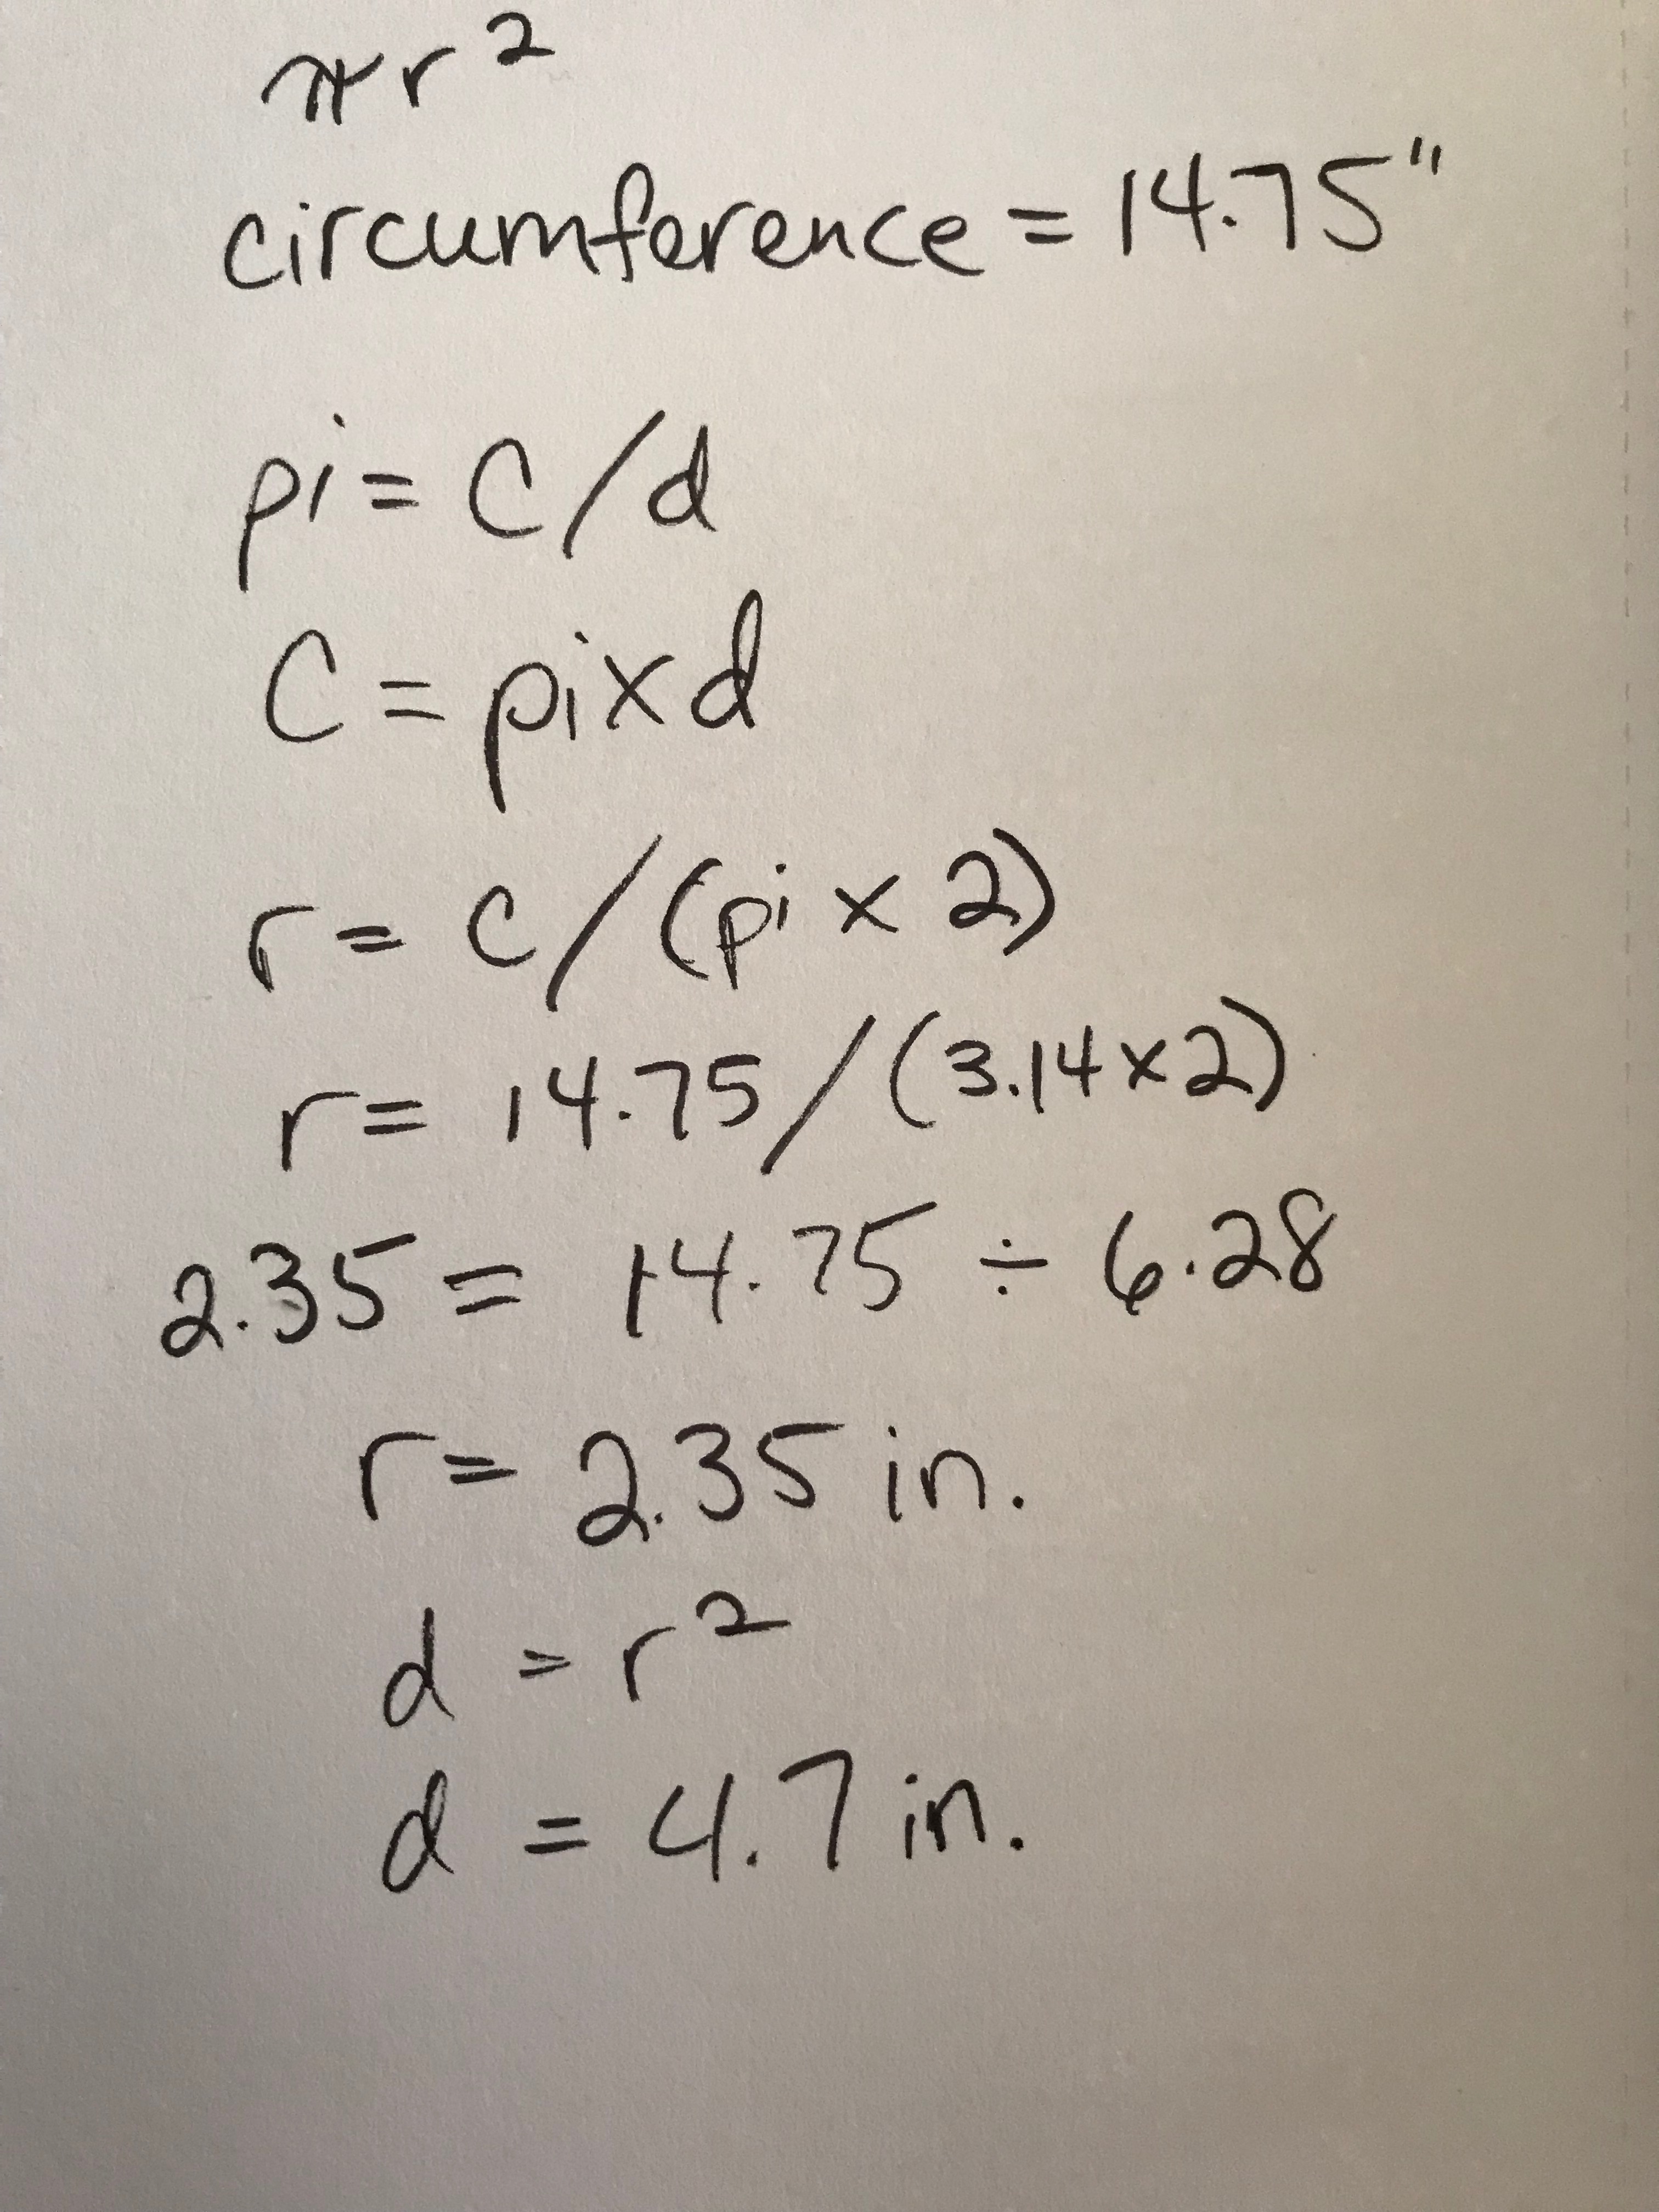 πr²
circumference = 14.75"
pi = C/d
C = pi x d
r = c/(pi x 2)
r = 14.75/(3.14 x 2)
2.35 = 14.75 ÷ 6.28
r = 2.35 in.
d = r²
d = 4.7 in.